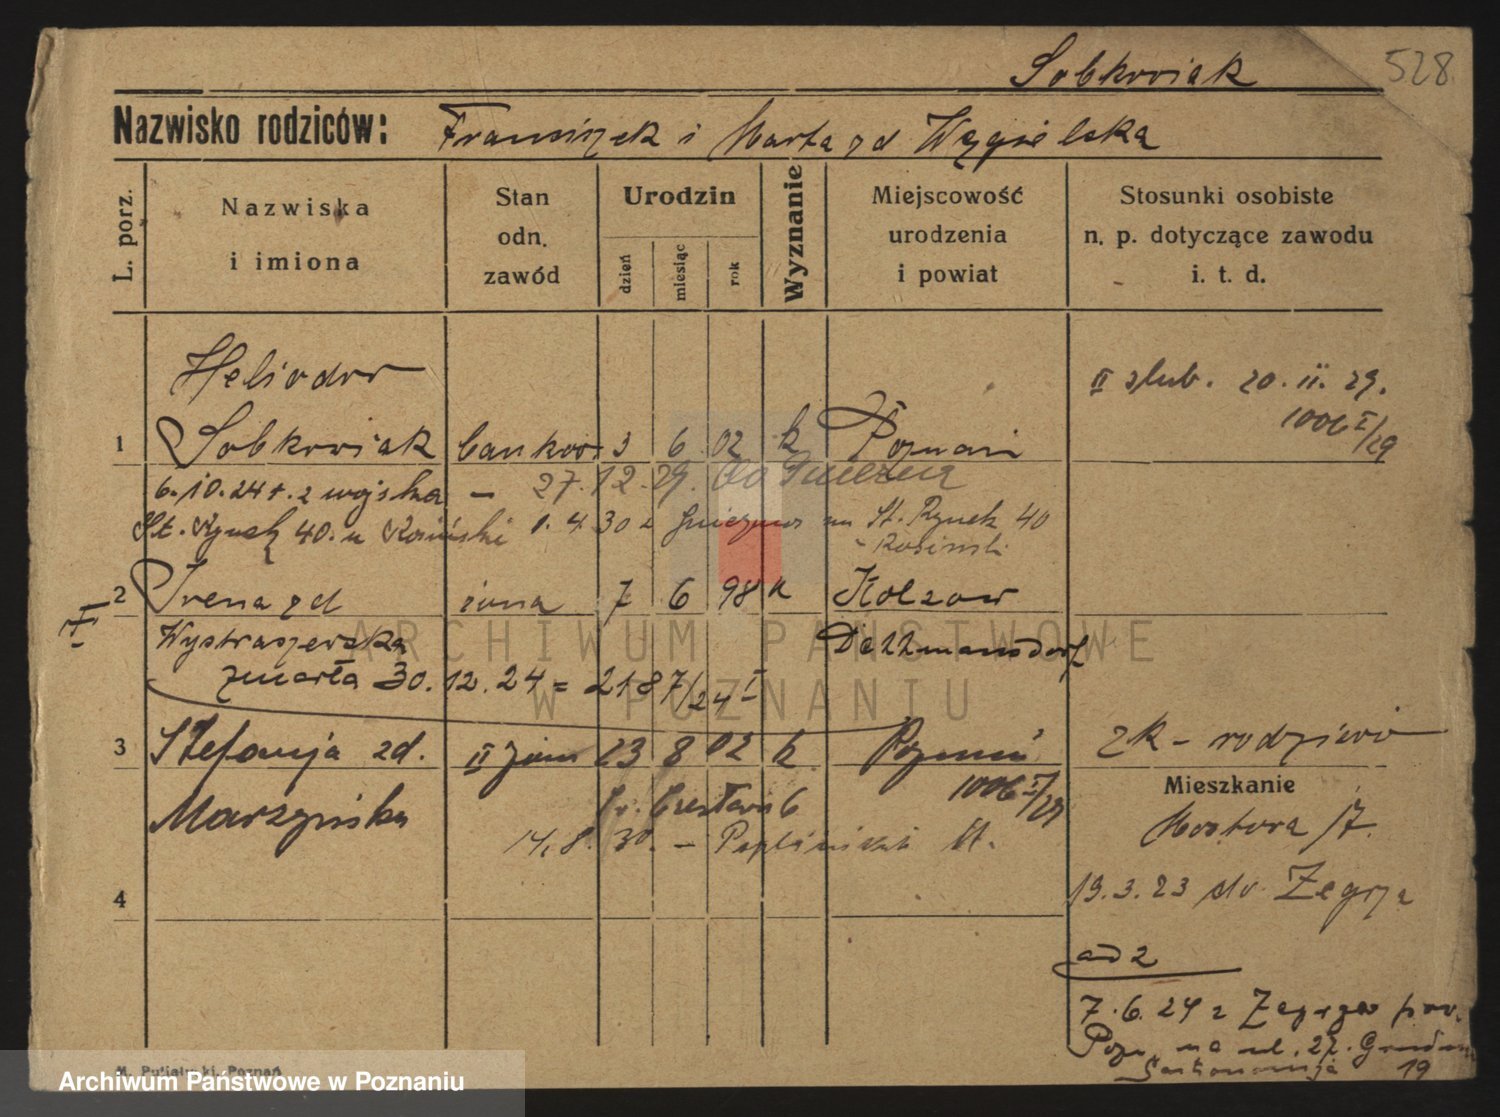 Sobkowiak 528
Nazwisko rodziców: Franciszek i Marta zd Węgielska
L. porz.
Nazwiska
i imiona
Stan
odn.
zawód
Urodzin
dzień
miesiąc
rok
Wyznanie
Miejscowość
urodzenia
i powiat
Stosunki osobiste
n. p. dotyczące zawodu
i. t. d.
Heliodor
II ślub. 20. II. 29.
1006 I/29
1 Sobkowiak bankow 3 6 02 k Poznań
6.10.24 r. z wojska - 27.12.29. do Gniezna
St. Rynek 40. u Kosiński 1.4.30 z Gniezna na St. Rynek 40
- Kosinski
2 Irena zd żona 7 6 98 k Kolzow
I
Wystraszewska
Dezzmansdorf
zmarła 30.12.24 = 2187/24 I
3 Stefanja zd. II żona 23 8 02 k. Poznań
zk - rodziców
1006 I/29
Marszyńska
14.8.30. -
Mieszkanie
Mostowa 17.
19.3.23 do Zegrza
4
ad 2
7.6.24 z Zegrza pow.
Pozn na ul. 27. Grudnia
19
M. Putiatycki, Poznań
ARCHIWUM PAŃSTWOWE
W POZNANIU
Archiwum Państwowe w Poznaniu